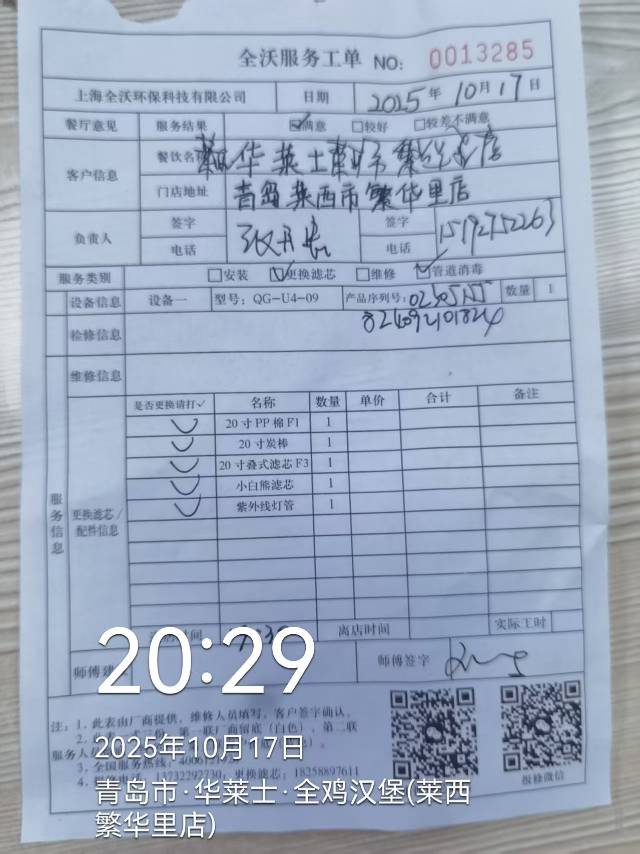 全沃服务工单 NO: 0013285
上海全沃环保科技有限公司 日期 2025年10月17日
餐厅意见 服务结果 ☑满意 □较好 □较差不满意
客户信息 餐饮名 华莱士 繁华里店
门店地址 青岛莱西市繁华里店
负责人 签字 签字
电话 电话 15192752263
服务类别 □安装 ☑更换滤芯 □维修 ☑管道消毒
设备信息 设备一 型号: QG-U4-09 产品序列号: 数量 1
检修信息
维修信息
服务信息 更换滤芯/配件信息
是否更换请打✓ 名称 数量 单价 合计 备注
✓ 20寸PP棉F1 1
✓ 20寸炭棒 1
✓ 20寸叠式滤芯F3 1
✓ 小白熊滤芯 1
✓ 紫外线灯管 1
时间 离店时间 实际工时
师傅建 师傅签字
注: 1、此表由厂商提供, 维修人员填写, 客户签字确认。
第一联厂商留底(白色), 第二联
服务人
3、全国服务热线:
4、 13732292730, 更换滤芯: 18258897611
报修微信
20:29
2025年10月17日
青岛市·华莱士·全鸡汉堡(莱西
繁华里店)